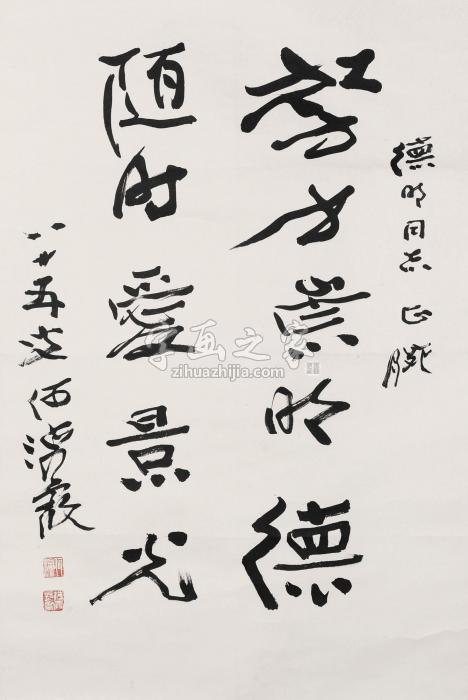 德明同志正腕
努力崇明德
随时愛景光
八十五叟何海霞
字画之家
zihuazhijia.com